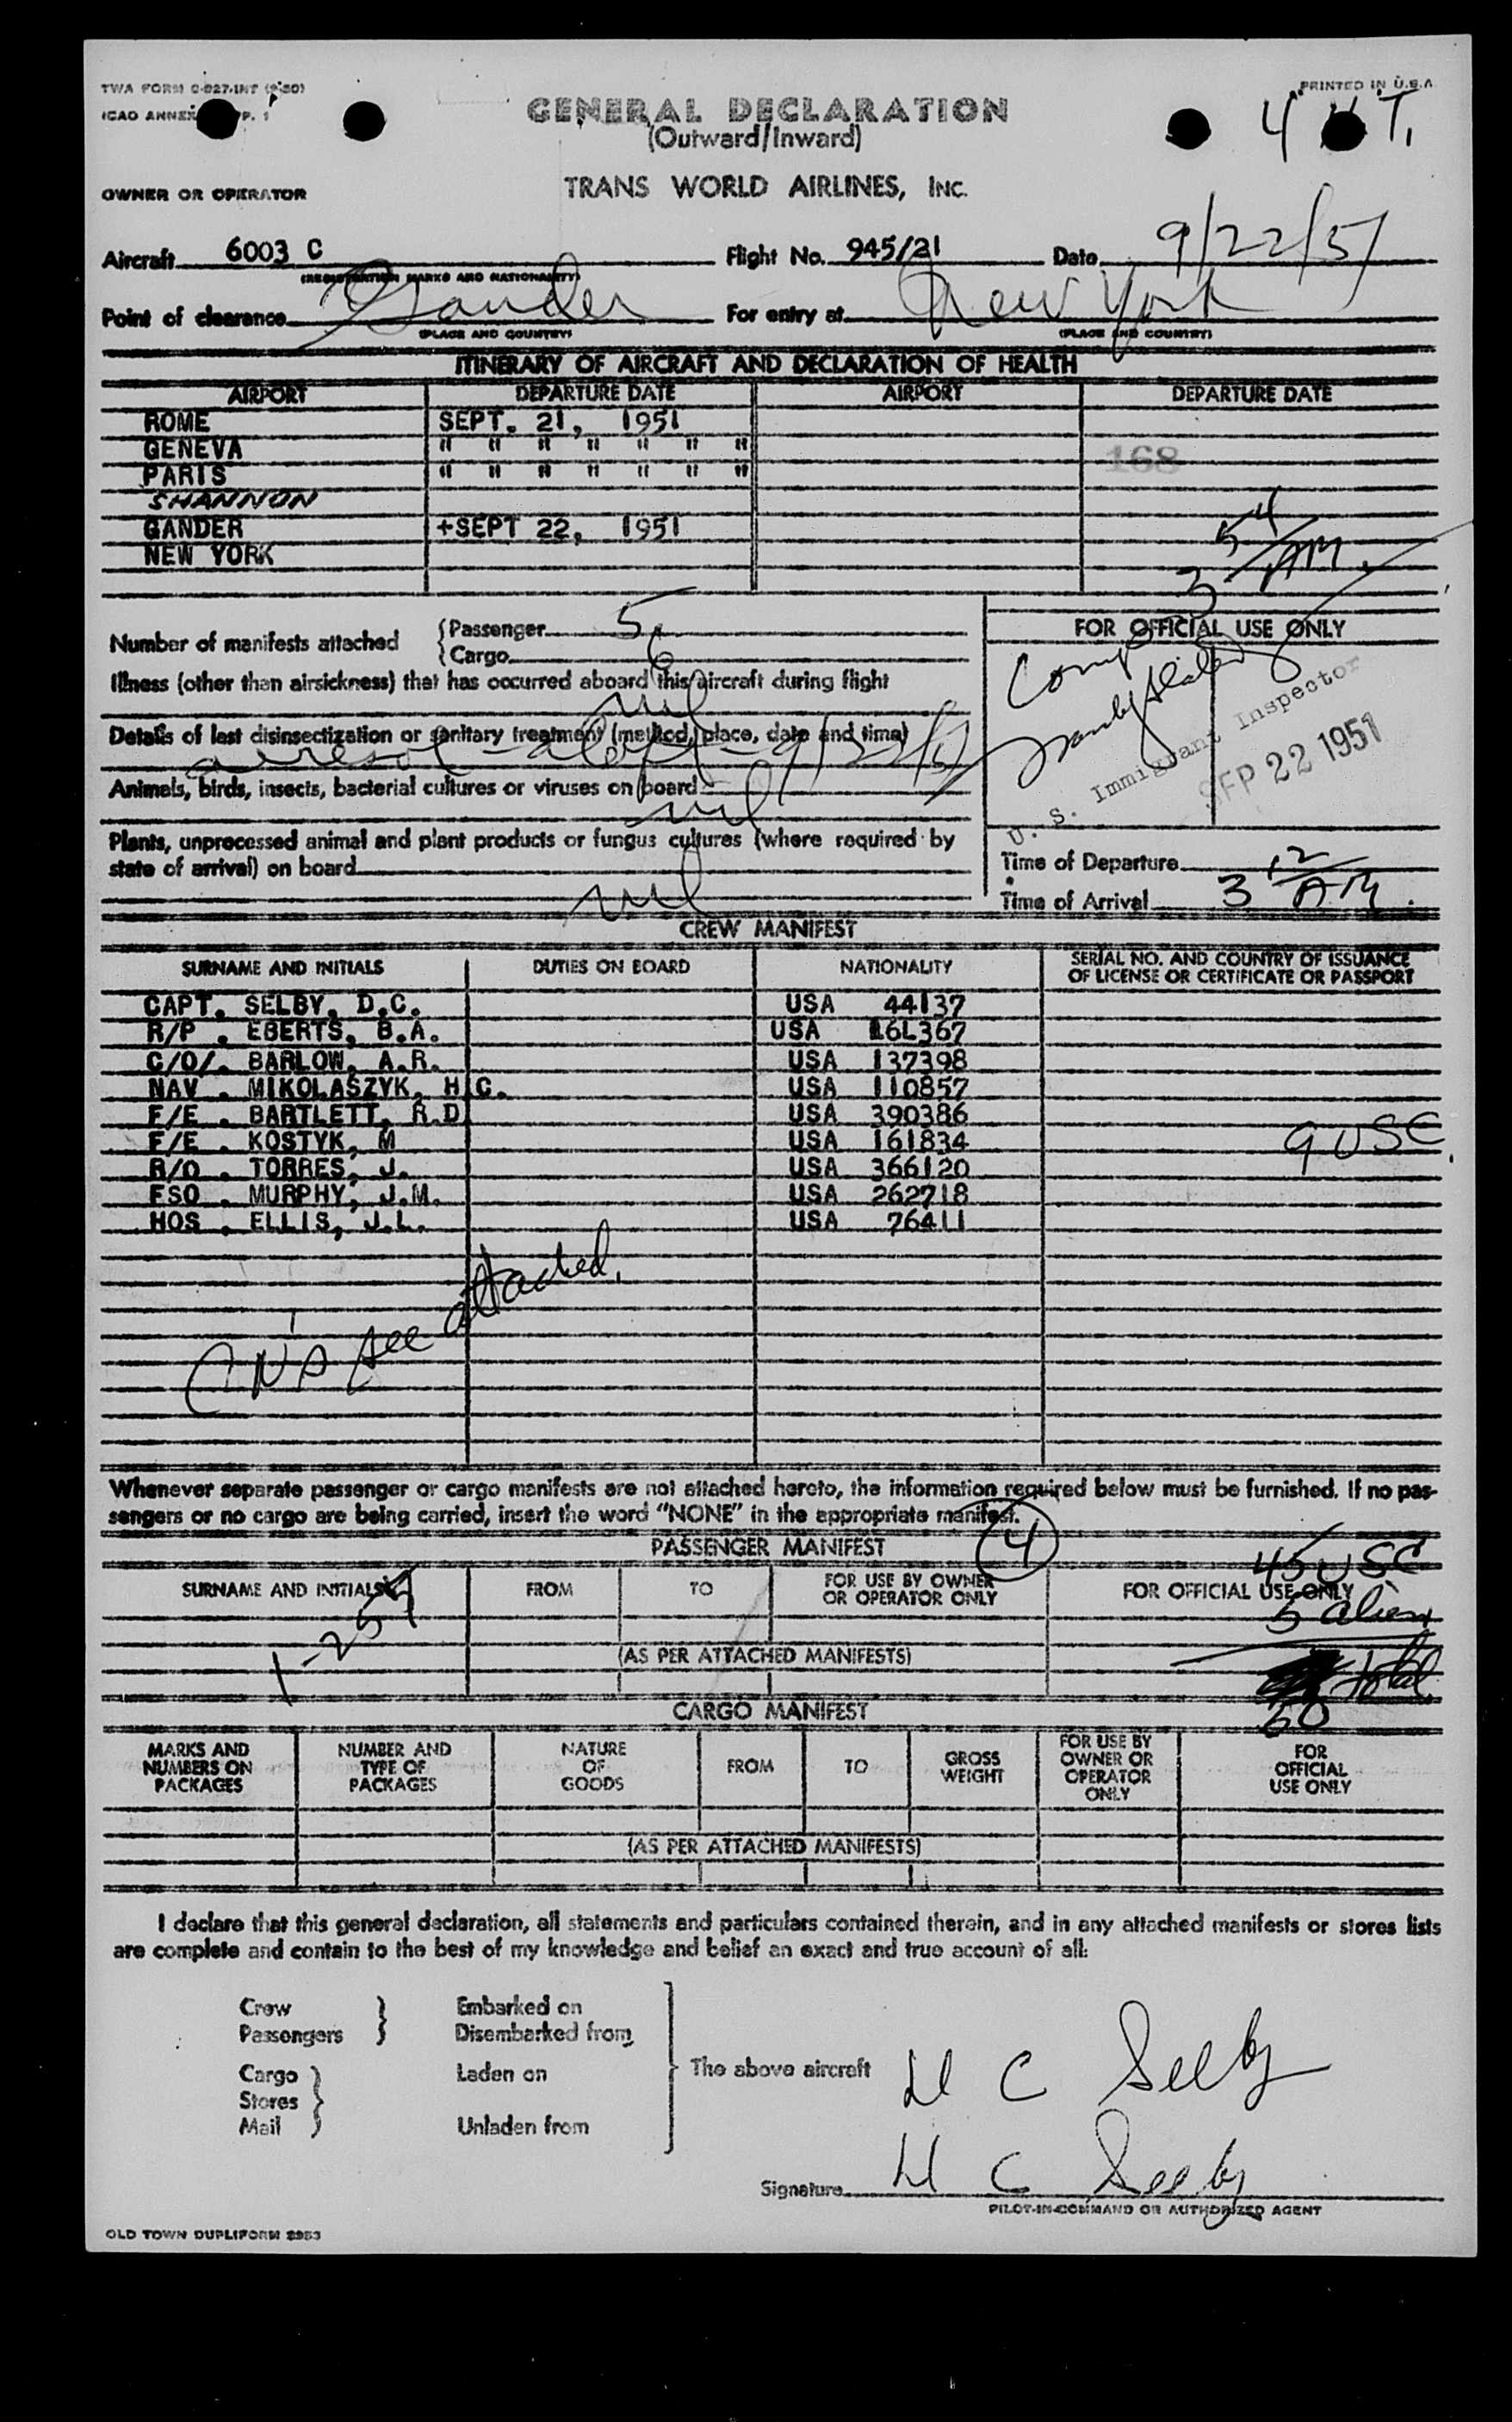 TWA FORM
PRINTED IN U.S.A.
ICAO ANNEX P. 1
GENERAL DECLARATION
4 T.
(Outward/Inward)
OWNER OR OPERATOR
TRANS WORLD AIRLINES, INC.
Aircraft 6003 C Flight No. 945/21 Date 9/22/51
(REGISTRATION MARKS AND NATIONALITY)
Point of clearance Gander For entry at New York
(PLACE AND COUNTRY) (PLACE AND COUNTRY)
ITINERARY OF AIRCRAFT AND DECLARATION OF HEALTH
AIRPORT DEPARTURE DATE AIRPORT DEPARTURE DATE
ROME SEPT. 21, 1951
GENEVA " " " " " " "
PARIS " " " " " " " 168
SHANNON
GANDER +SEPT 22, 1951
NEW YORK
3 54 AM.
Number of manifests attached
{Passenger 5
{Cargo 6
FOR OFFICIAL USE ONLY
Illness (other than airsickness) that has occurred aboard this aircraft during flight
nil
Details of last disinsectization or sanitary treatment (method, place, date and time)
9/22/51
U. S. Immigrant Inspector
SEP 22 1951
Animals, birds, insects, bacterial cultures or viruses on board
nil
Plants, unprocessed animal and plant products or fungus cultures (where required by
state of arrival) on board
nil
Time of Departure
Time of Arrival 3 12 AM.
CREW MANIFEST
SURNAME AND INITIALS DUTIES ON BOARD NATIONALITY SERIAL NO. AND COUNTRY OF ISSUANCE
OF LICENSE OR CERTIFICATE OR PASSPORT
CAPT. SELBY, D.C. USA 44137
R/P . EBERTS, B.A. USA 16L367
C/O/. BARLOW, A.R. USA 137398
NAV . MIKOLASZYK, H.C. USA 110857
F/E . BARTLETT, R.D USA 390386
F/E . KOSTYK, M USA 161834 9 USC.
R/O . TORRES, J. USA 366120
FSO . MURPHY, J.M. USA 262718
HOS . ELLIS, J.L. USA 76411
see attached.
Whenever separate passenger or cargo manifests are not attached hereto, the information required below must be furnished. If no pas-
sengers or no cargo are being carried, insert the word "NONE" in the appropriate manifest.
PASSENGER MANIFEST 4 45 USC
SURNAME AND INITIALS FROM TO FOR USE BY OWNER
OR OPERATOR ONLY FOR OFFICIAL USE ONLY
5 alien
(AS PER ATTACHED MANIFESTS)
total
50
CARGO MANIFEST
MARKS AND
NUMBERS ON
PACKAGES
NUMBER AND
TYPE OF
PACKAGES
NATURE
OF
GOODS
FROM
TO
GROSS
WEIGHT
FOR USE BY
OWNER OR
OPERATOR
ONLY
FOR
OFFICIAL
USE ONLY
(AS PER ATTACHED MANIFESTS)
I declare that this general declaration, all statements and particulars contained therein, and in any attached manifests or stores lists
are complete and contain to the best of my knowledge and belief an exact and true account of all:
Crew
Passengers
Embarked on
Disembarked from
Cargo
Stores
Mail
Laden on
Unladen from
The above aircraft D C Selby
Signature D C Selby
PILOT-IN-COMMAND OR AUTHORIZED AGENT
OLD TOWN DUPLIFORM 2953